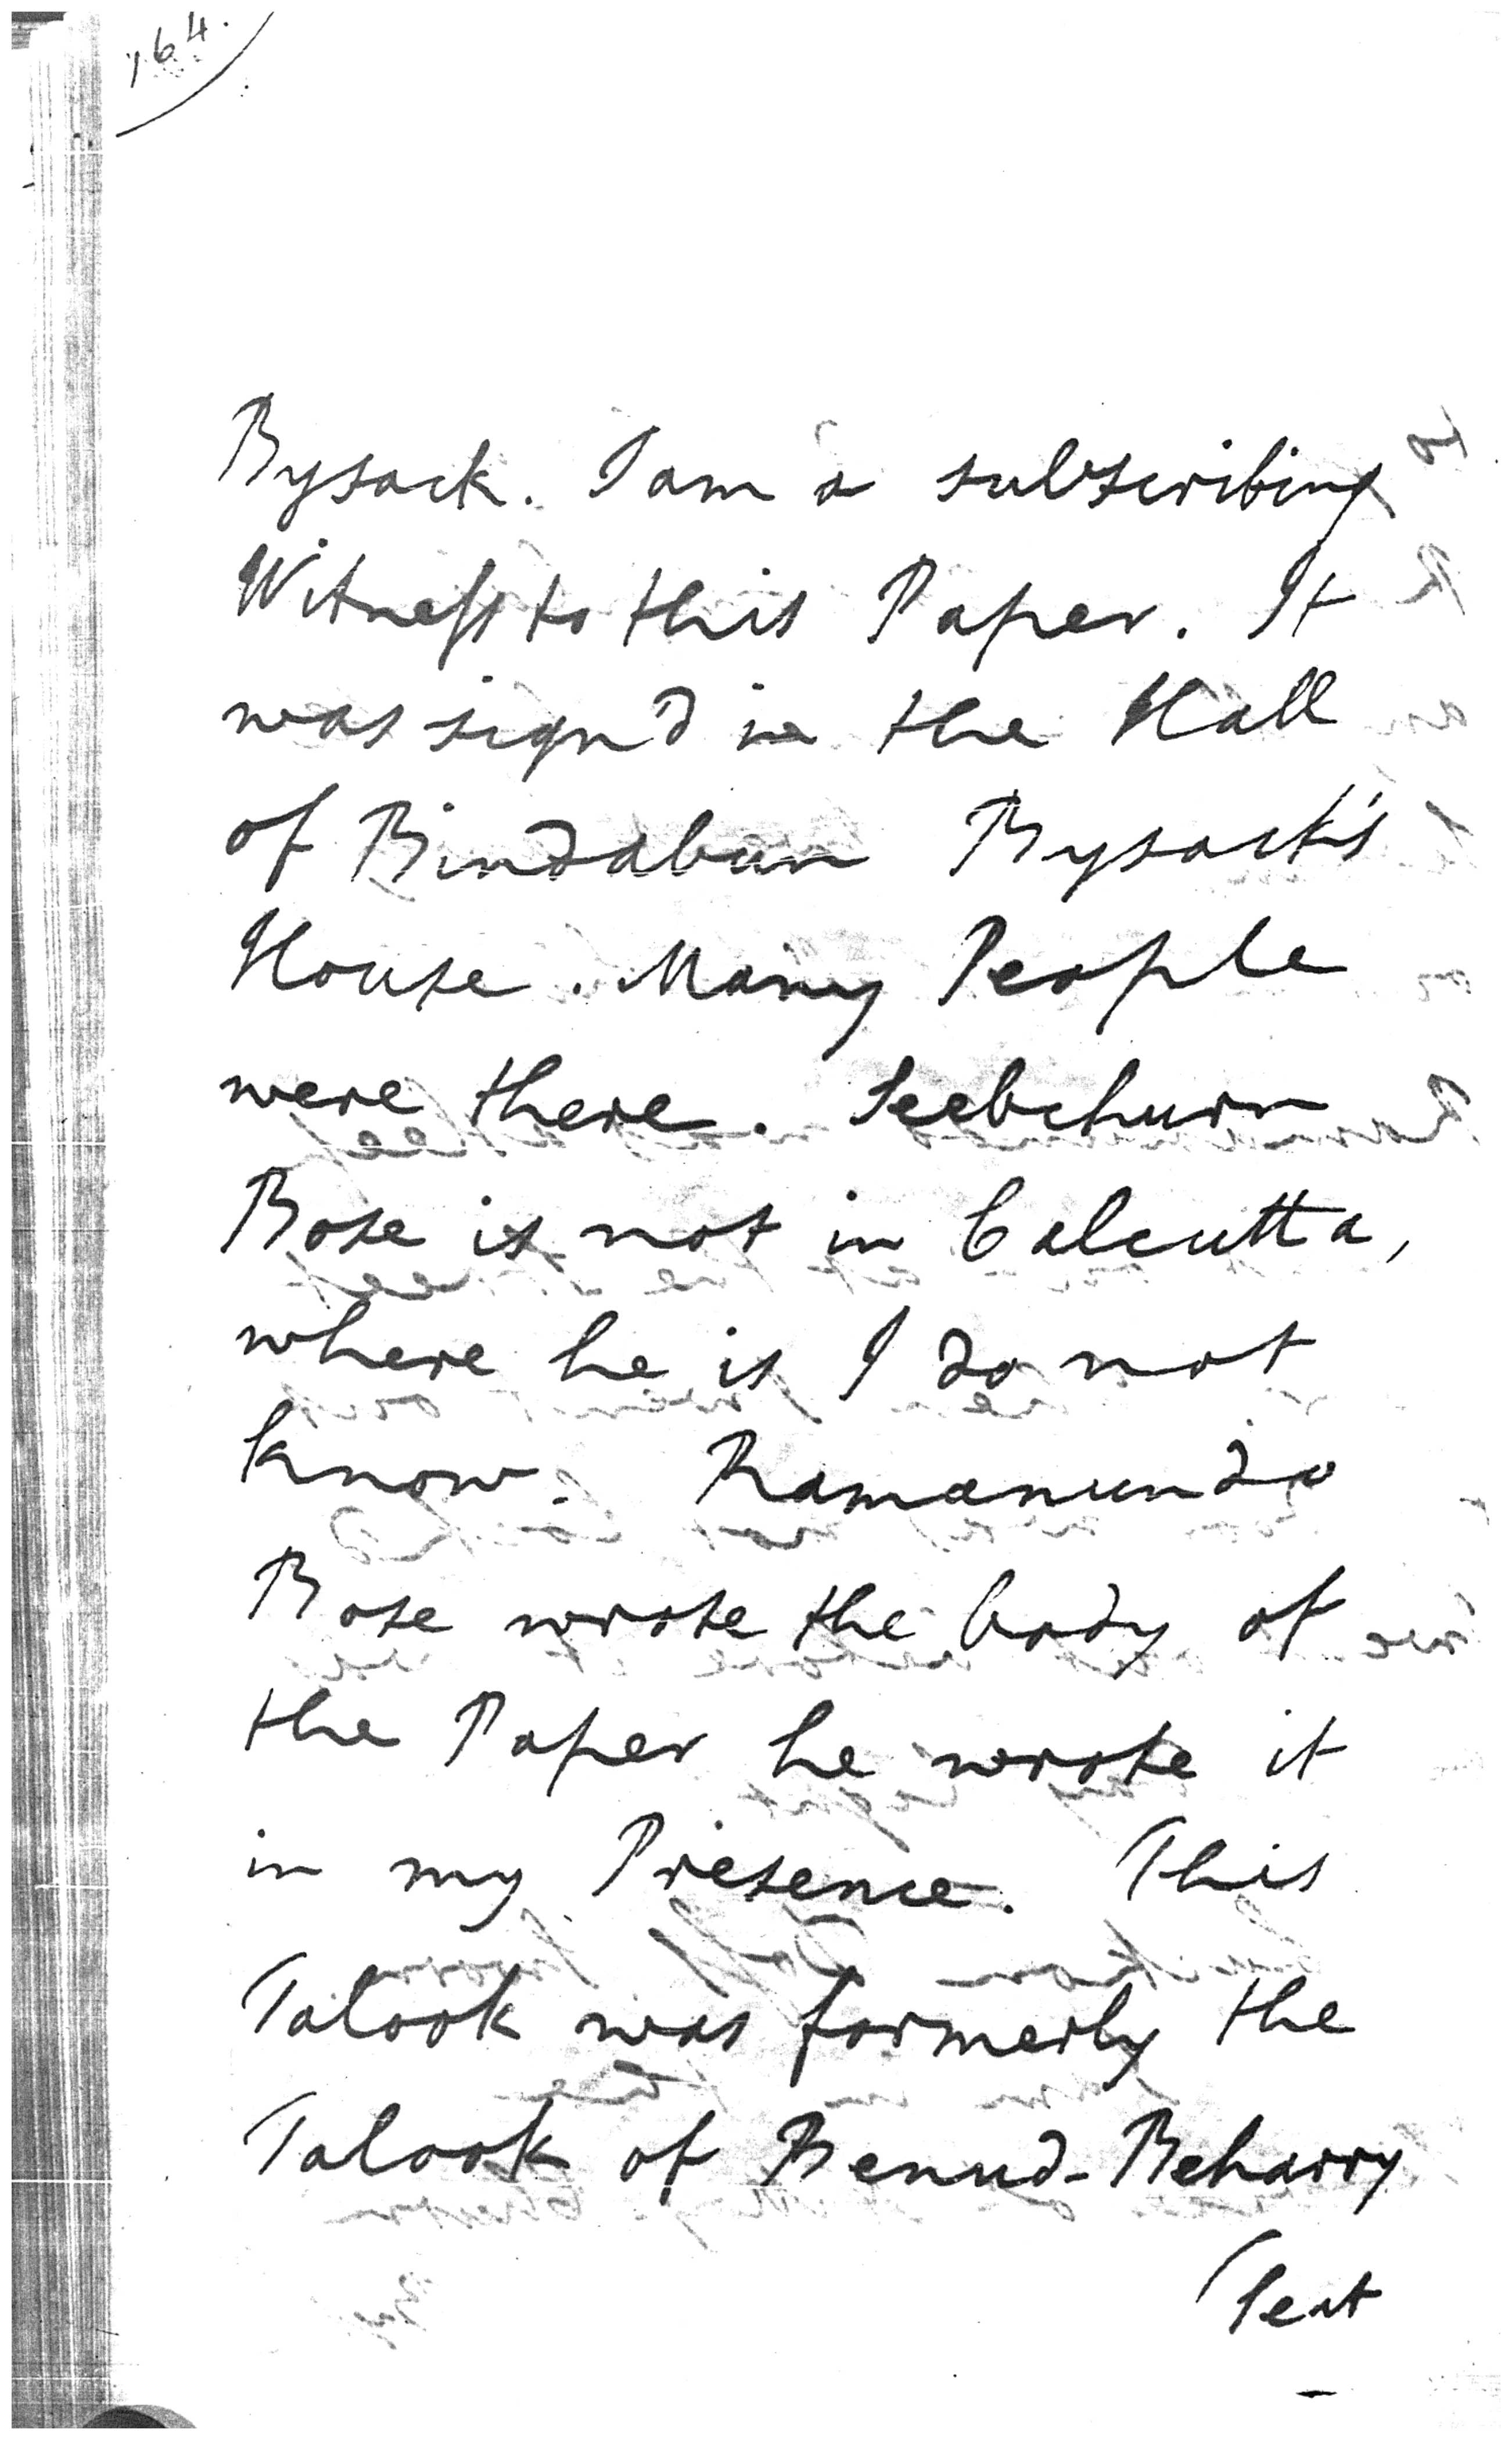 164.
Bysack. I am a subscribing
Witness to this Paper. It
was sign'd in the Hall
of Bindabun Bysack's
House. Many People
were there. Seebchurn
Bose is not in Calcutta,
where he is I do not
know. Ramanundo
Bose wrote the body of
the Paper he wrote it
in my Presence. This
Talook was formerly the
Talook of Benud-Beharry